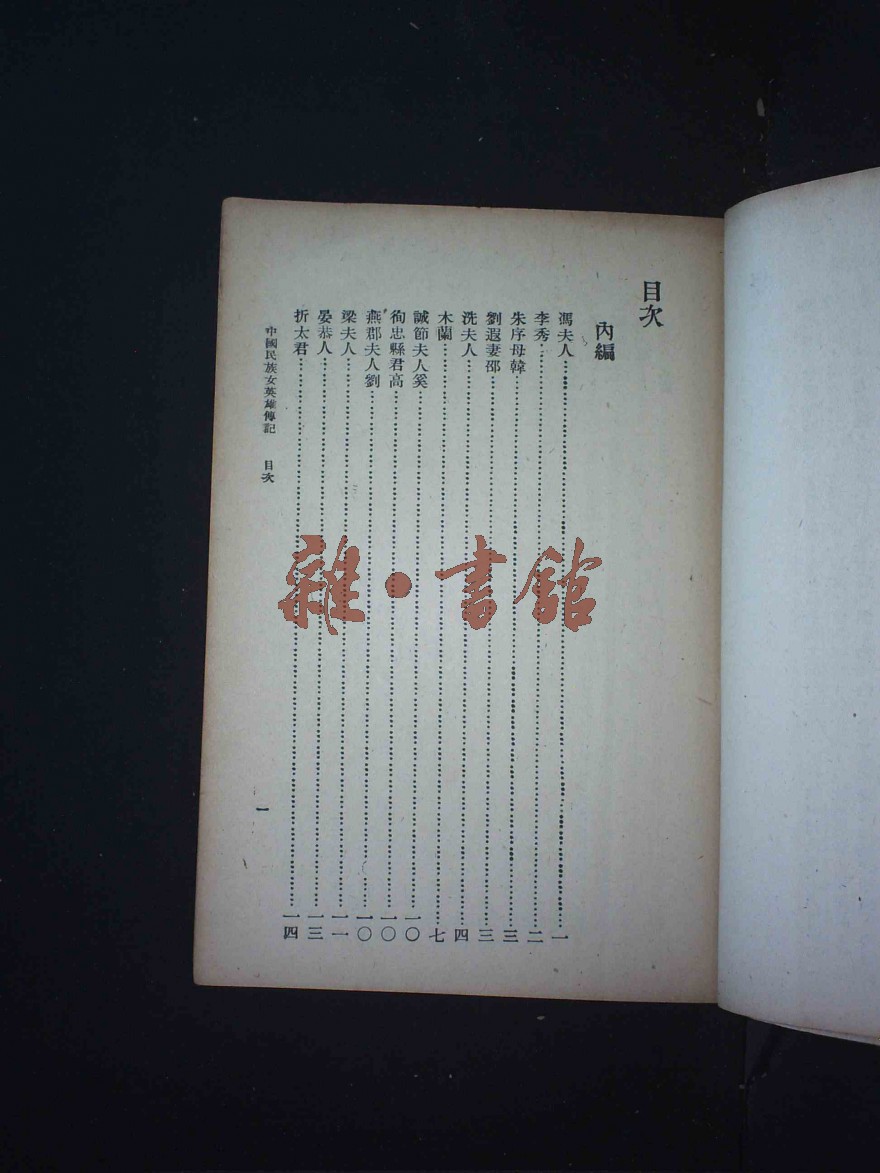 目次
內編
馮夫人……一
李秀……二
朱序母韓……三
劉遐妻邵……三
洗夫人……四
木蘭……七
誠節夫人奚……一〇
徇忠縣君高……一〇
燕郡夫人劉……一〇
梁夫人……一一
晏恭人……一三
折太君……一四
中國民族女英雄傳記 目次
一
雜·書館